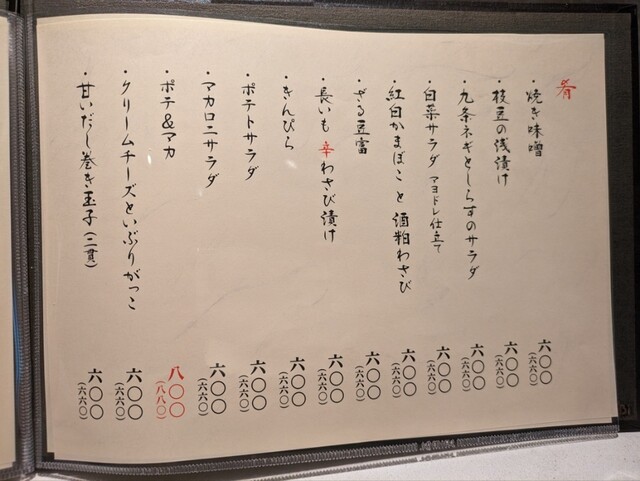 肴
・焼き味噌 六〇〇(六六〇)
・枝豆の浅漬け 六〇〇(六六〇)
・九条ネギとしらすのサラダ 六〇〇(六六〇)
・白菜サラダ マヨドレ仕立て 六〇〇(六六〇)
・紅白かまぼこと酒粕わさび 六〇〇(六六〇)
・ざる豆富 六〇〇(六六〇)
・長いも 辛わさび漬け 六〇〇(六六〇)
・きんぴら 六〇〇(六六〇)
・ポテトサラダ 六〇〇(六六〇)
・マカロニサラダ 六〇〇(六六〇)
・ポテ&マカ 八〇〇(八八〇)
・クリームチーズといぶりがっこ 六〇〇(六六〇)
・甘いだし巻き玉子(二貫) 六〇〇(六六〇)